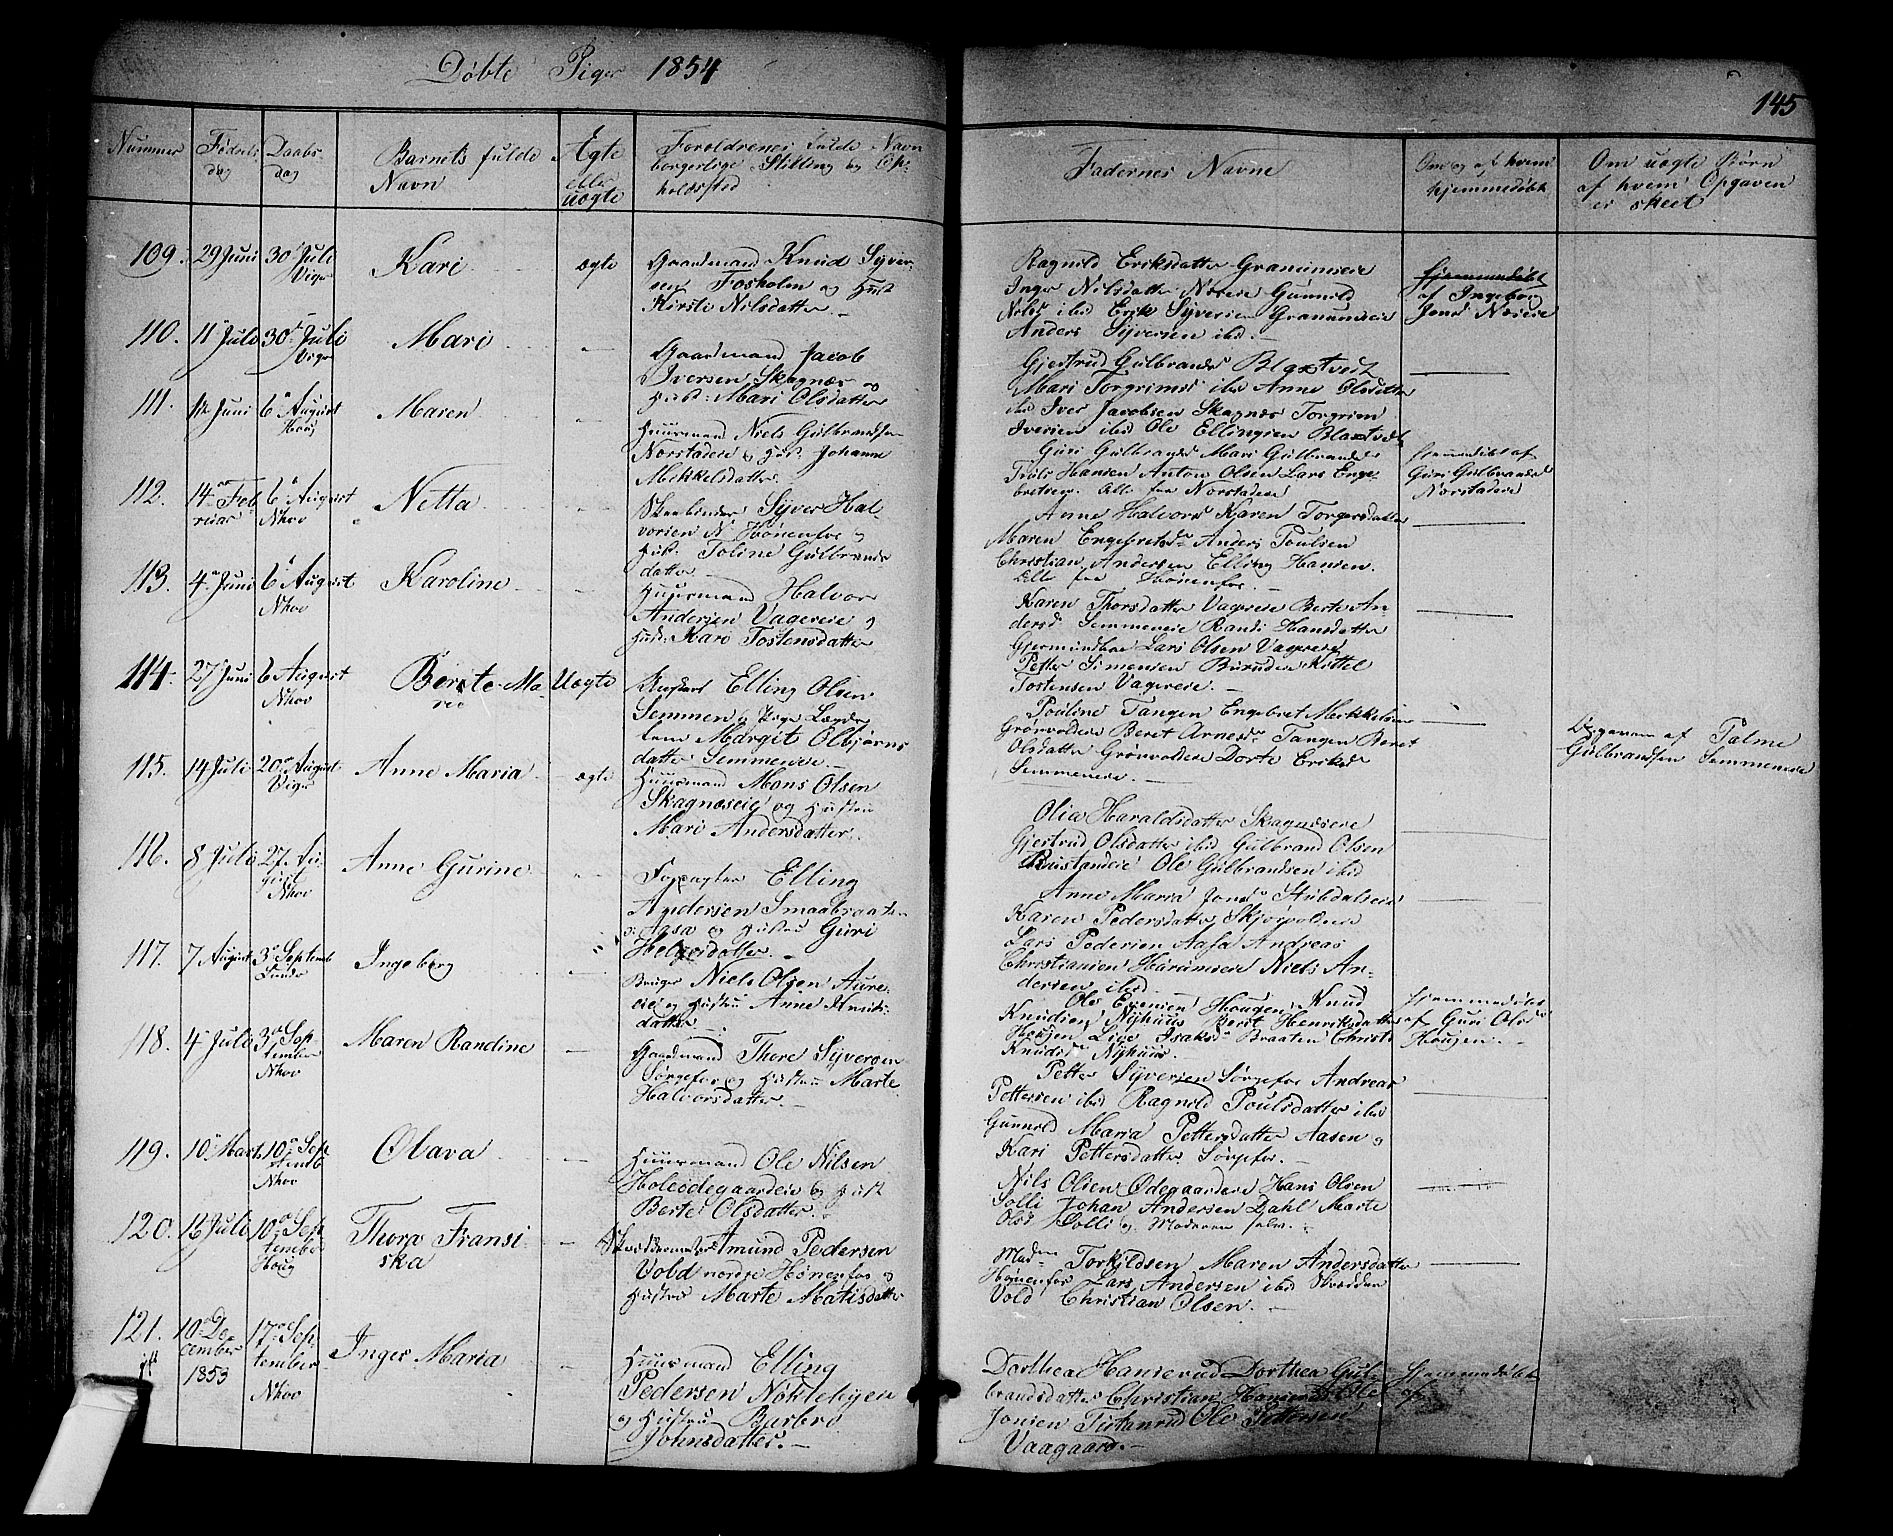 Døbte Piger 1854
145
Nummer
Fødsels
dag
Daabs-
dag
Barnets fulde
Navn
Ægte
eller
uægte
Foreldrenes fulde Navn
borgerlige Stilling og Op-
holdssted
Faddernes Navne
Om og af hvem
hjemmedøbt
Om uægte Børn
af hvem Opgaven
er skeet
109.
29 Juni
30 Juli
Viger
Kari
ægte
Gaardmand Knud Syver-
sen Fosholm og Hust
Kirsti Nilsdatter.
Ragnild Eriksdatter Granumseie
Inger Nilsdatter Næseie Gunnild
Nelsd ibid Erik Syversen Granumseie
Anders Syversen ibd.
Hjemmedøbt
af Ingeborg
Jonsd Næseie
110.
11 Juli
30 Juli
Viger
Mari
Gaardmand Jacob
Iversen Skagnæs og
Hust: Mari Olsdatter
Gjertrud Gulbrandsd Blaxtvedt
Mari Torgrimsd ibd Anne Olsdatter
ibd Iver Jacobsen Skagnæs Torgrim
Iversen ibid Ole Ellingsen Blaxtvedt
111.
12 Juni
6 August
Houg
Maren
Huusmand Niels Gulbrandsen
Norstadeie og Hust. Johanne
Mikkelsdatter
Guri Gulbrandsd Mari Gulbrandsd
Truls Hansen Anton Olsen Lars Enge-
bretsen. Alle fra Norstadeie
Hjemmedøbt af
Guri Gulbrandsd
Norstadeie
112.
14 Feb
ruar
6 August
Nhov
Netta
Syver Hal-
vorsen N Hønenfos og
Hust. Toline Gulbrands
datter
Anne Halvorsd Karen Torgersdatter
Maren Engebretsd Anders Poulsen
Christian Andersen Elling Hansen.
Alle fra Hønenfos.
113.
4 Juni
6 August
Nhov
Karoline
Huusmand Halvor
Andersen Vagereie og
Hust. Kari Tostensdatter
Karen Thorsdatter Vagereie Berte An-
dersd Semmeneie Randi Hansdatter
Gjermundboe Lars Olsen Vagereie
Petter Simensen Kittel
Tostensen Vagereie.
114.
27 Juni
6 August
Nhov
Berte Ma-
rie
Uægte
Ungkarl Elling Olsen
Semmen og Pige Lægds
lem Margit Olbjørns
datter Semmeneie.
Pouline Tangen Engebret Mikkelsen
Grønvoldeie Beret Arnesd Tangen Beret
Olsdatter Grønvoldeie Dorte Eriksd
Semmeneie.
Opgaven af Palme
Gulbrandsen Semmeneie
115.
14 Juli
20 August
Viger
Anne Maria
ægte
Huusmand Mons Olsen
Skagnæseie og Hustru
Mari Andersdatter.
Olia Haraldsdatter Skagnæseie
Gjertrud Olsdatter ibid Gulbrand Olsen
Ole Gulbrandsen ibid
116.
8 Juli
27 Au-
gust
Nhov
Anne Gurine
Forpagter Elling
Andersen Smaabraaten
Aasa og Hustru Guri
Helgesdatter.
Anne Maria Jonsd Stubdalseie
Karen Pedersdatter Skjørvoldeie
Lars Pedersen Aasa Andreas
Christiansen Harumseie Niels An-
dersen ibid.
117.
7 August
3 Septemb
Lunder
Ingeborg
Bruger Niels Olsen Aure-
eie og Hustru Anne Knuds-
datter
Ole Evensen Hougen Knud
Knudsen Nyhuus Berit Henriksdatter
Hougen Lise Isaksd Braaten Christi
Knudsd Nyhuus.
Hjemmedøbt
af Guri Olsd
Hougen.
118.
4 Juli
3 Sep
tember
Nhov
Maren Randine
Gaardmand Thore Syversen
Sørgefos og Hustru Marte
Halvorsdatter.
Petter Syversen Sørgefos Andreas
Pettersen ibid Ragnild Poulsdatter ibid
Gunnild Maria Pettersdatter Aasen og
Kari Pettersdatter Sørgefos.
119.
10 Marts
10 Sep
temb
Nhov
Olava
Huusmand Ole Nilsen
Holeødegaardeie og Hust
Berte Olsdatter.
Nils Olsen Ødegaardeie Hans Olsen
Solli Johan Andersen Dahl Marte
Olsd Solli og Moderen selv.
120.
16 Juli
10 Sep
tember
Houg
Thora Fransi-
ska
Skræddermester Amund Pedersen
Vold nordre Hønenfos og
Hustru Marte Matisdatter
Mad Torkildsen Maren Andersdatter
Hønenfos Lars Andersen ibid Skrædder
Vold Christian Olsen.
121.
10 De-
cember
1853
17 Sep
tember
Nhov
Inger Maria
Huusmand Elling
Pedersen Nøklebyen
og Hustru Barbro
Johnsdatter.
Dorthea Hanserud Dorthea Gul-
brandsdatter Christian Ole
Jonsen Ole Pettersen
Vaagaard.
Hjemmedøbt
af